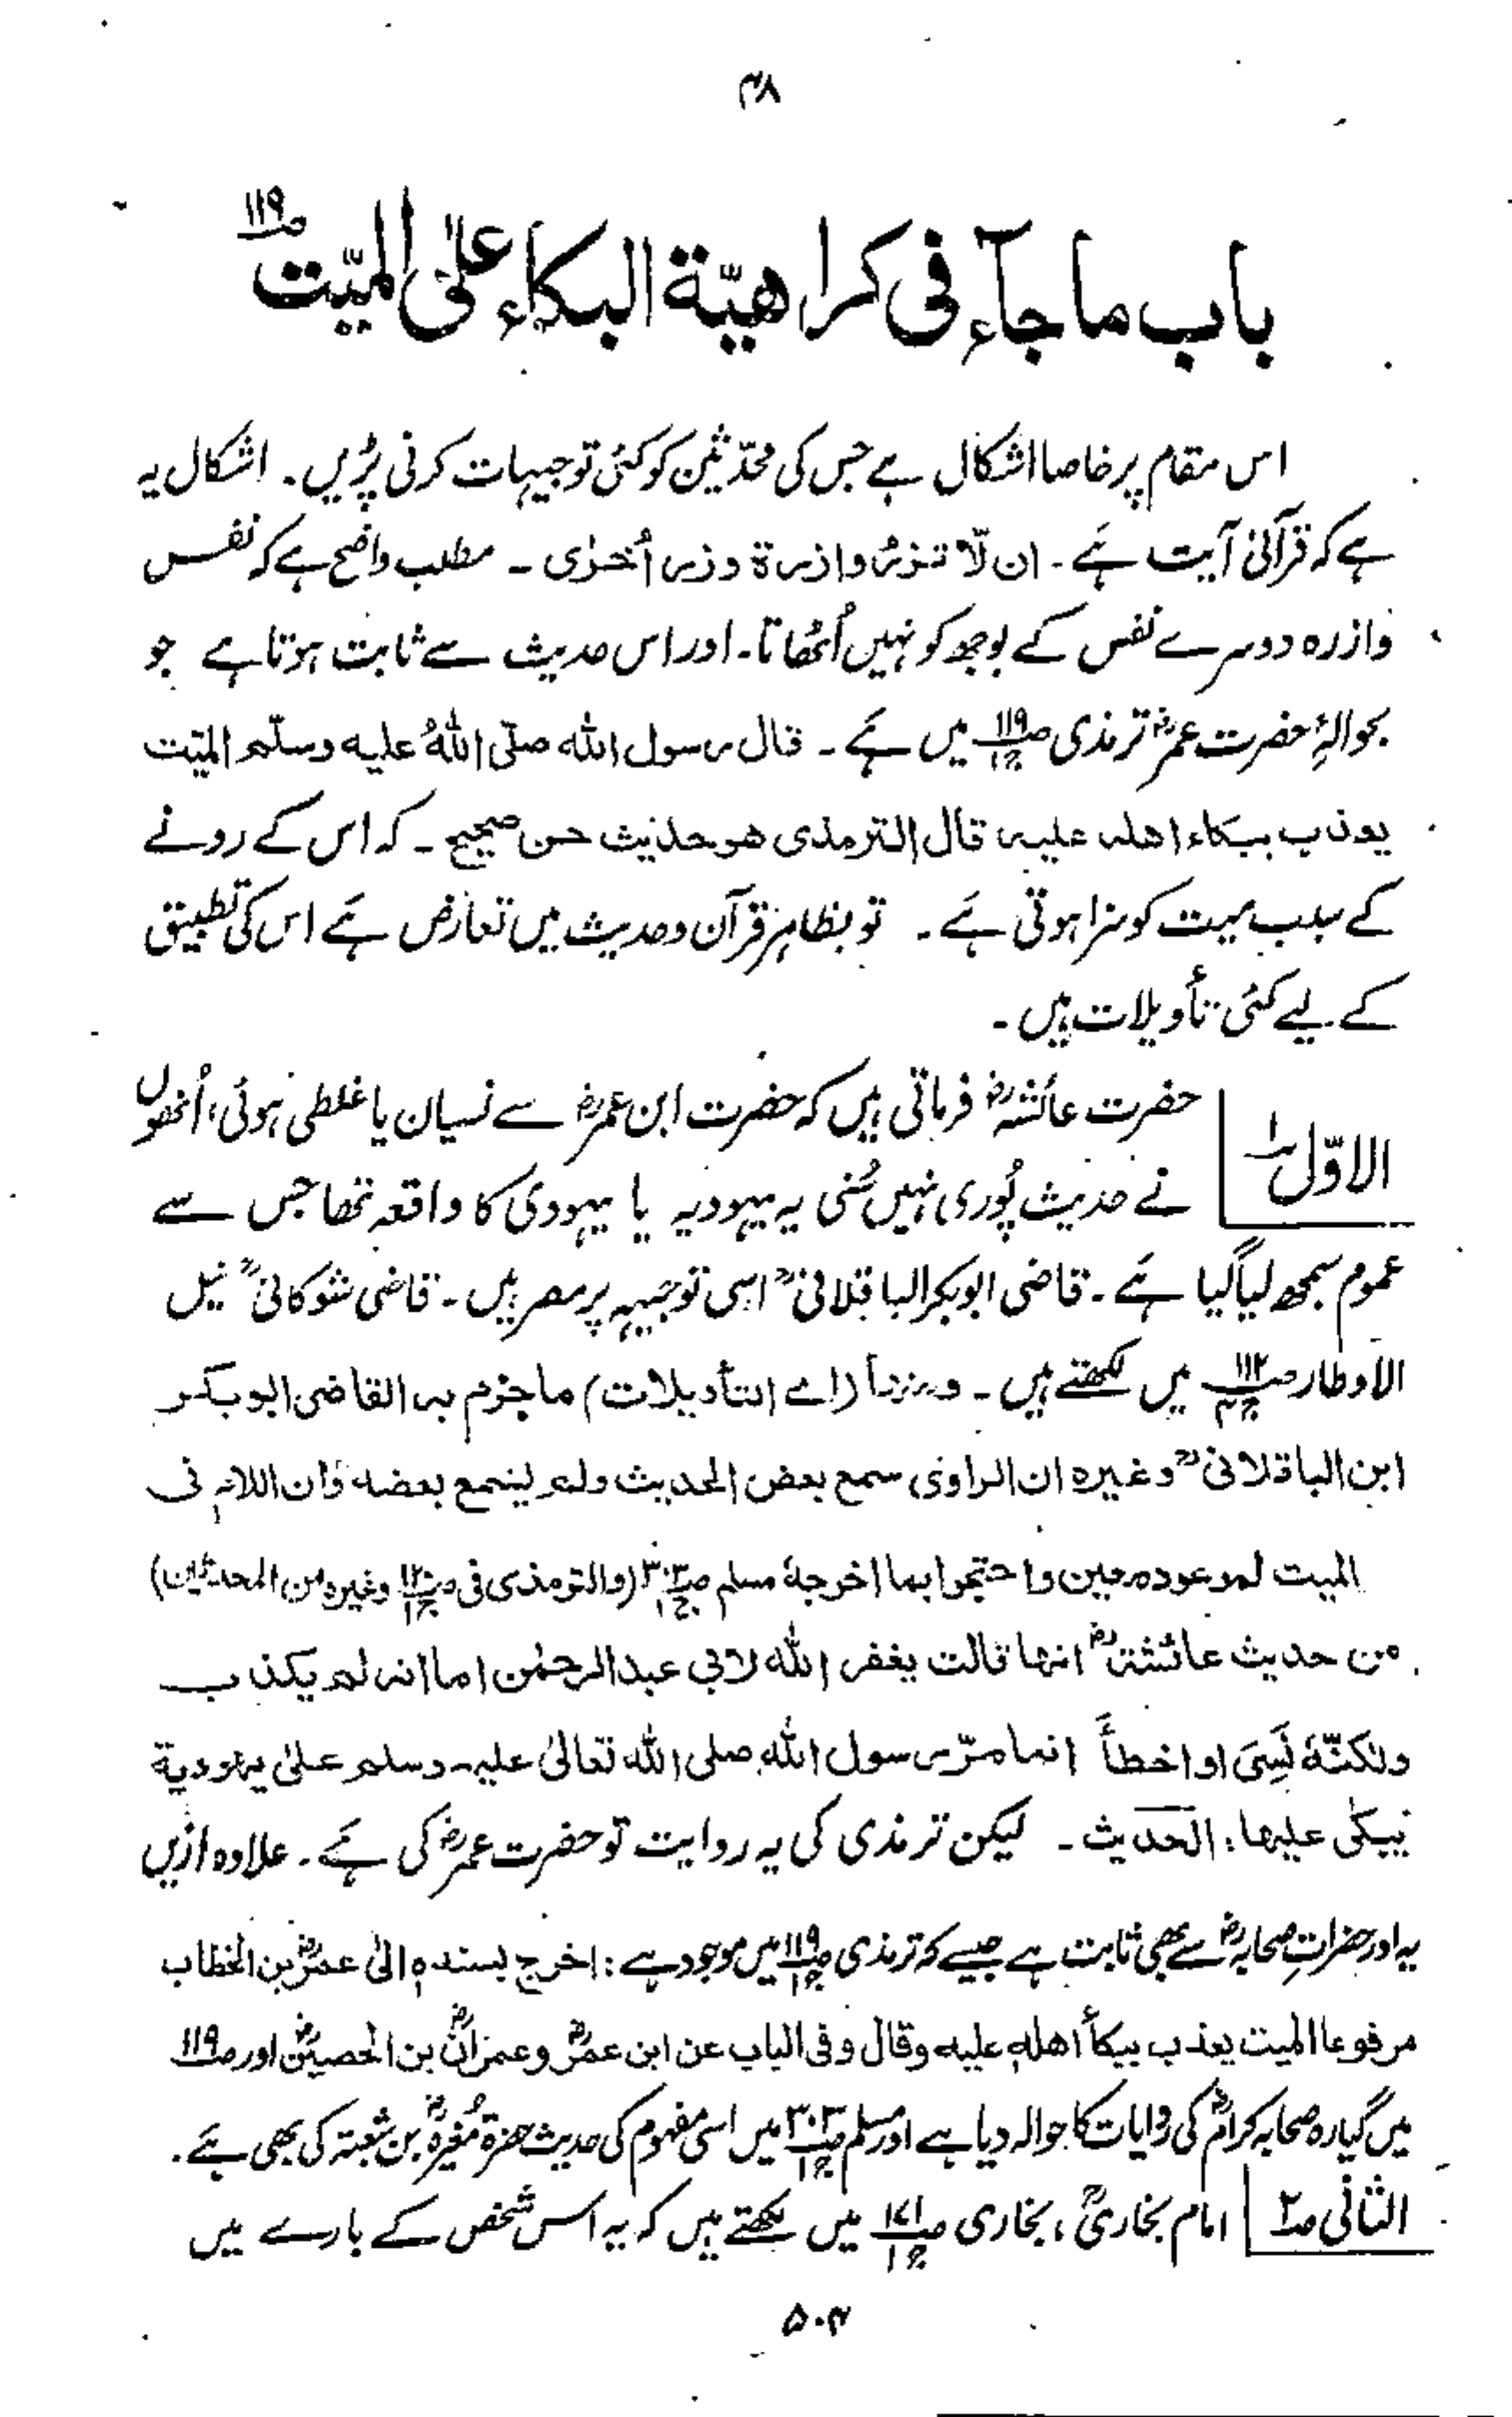 ۴۸
باب ما جآء فی کراهیّة البکاء علی المیّت ص۱۱۹
اس مقام پر خاصا اشکال ہے جس کی محدّثین کو کئی توجیہات کرنی پڑیں۔ اشکال یہ
ہے کہ قرآنی آیت ہَے۔ ان لّا تزرُ وازرة وزر اُخرٰی ۔ مطلب واضح ہے کہ نفس
وازرہ دوسرے نفس کے بوجھ کو نہیں اُٹھاتا۔ اور اس حدیث سے ثابت ہوتا ہے جو
بحوالۂ حضرت عمرؓ ترمذی ص۱۱۹ ج۱ میں ہَے ۔ قال رسول الله صلّی اللهُ علیه وسلّم المیّت
یعذب ببکاء اهله علیه قال الترمذی هو حدیث حسن صحیح ۔ کہ اس کے رونے
کے سبب میت کو سزا ہوتی ہَے ۔ تو بظاہر قرآن و حدیث میں تعارض ہَے اس کی تطبیق
کے لیے کئی تأویلات ہیں ۔
الاوّل ۱ حضرت عائشہؓ فرماتی ہیں کہ حضرت ابن عمرؓ سے نسیان یا غلطی ہوئی، اُنھوں
نے حدیث پُوری نہیں سُنی یہ یہودیہ یا یہودی کا واقعہ تھا جس سے
عموم سمجھ لیا گیا ہَے ۔ قاضی ابوبکر الباقلانیؒ اسی توجیہہ پر مصر ہیں ۔ قاضی شوکانیؒ نیل
الاوطار ص۱۱۲ ج۴ میں لکھتے ہیں ۔ ومنها (اے التأویلات) ما جزم به القاضی ابوبکر
ابن الباقلانیؒ وغیره ان الراوی سمع بعض الحدیث ولم یسمع بعضه وان اللام فی
المیت لمعهود معین واحتجوا بما اخرجهٗ مسلم ص۳۰۳ ج۱ (والترمذی فی ص۱۲۰ ج۱ وغیره من المحدثین)
من حدیث عائشةؓ انها قالت یغفر الله لابی عبد الرحمٰن اما انه لم یکذب
ولکنّهٗ نَسِیَ او اخطأَ انما مرّ رسول الله صلی الله تعالیٰ علیه وسلم علیٰ یهودیة
یبکٰی علیها: الحدیث ۔ لیکن ترمذی کی یہ روایت تو حضرت عمرؓ کی ہَے ۔ علاوہ ازیں
یہ اور حضراتِ صحابہؓ سے بھی ثابت ہے جیسے کہ ترمذی ص۱۱۹ ج۱ میں موجود ہے: اخرج بسندهٖ الیٰ عمرؓ بن الخطاب
مرفوعا المیت یعذب ببکأ اهلهٖ علیه وقال وفی الباب عن ابن عمرؓ وعمرانؓ بن الحصینؓ اور ص۱۱۹
میں گیارہ صحابہ کرامؓ کی روایات کا حوالہ دیا ہے اور مسلم ص۳۰۳ ج۱ میں اسی مفہوم کی حدیث حضرۃ مُغیرہؓ بن شعبة کی بھی ہَے ۔
الثانی ۲ امام بخاریؒ، بخاری ص۱۷۱ ج۱ میں لکھتے ہیں کہ یہ اس شخص کے بارے میں
۵۰۴